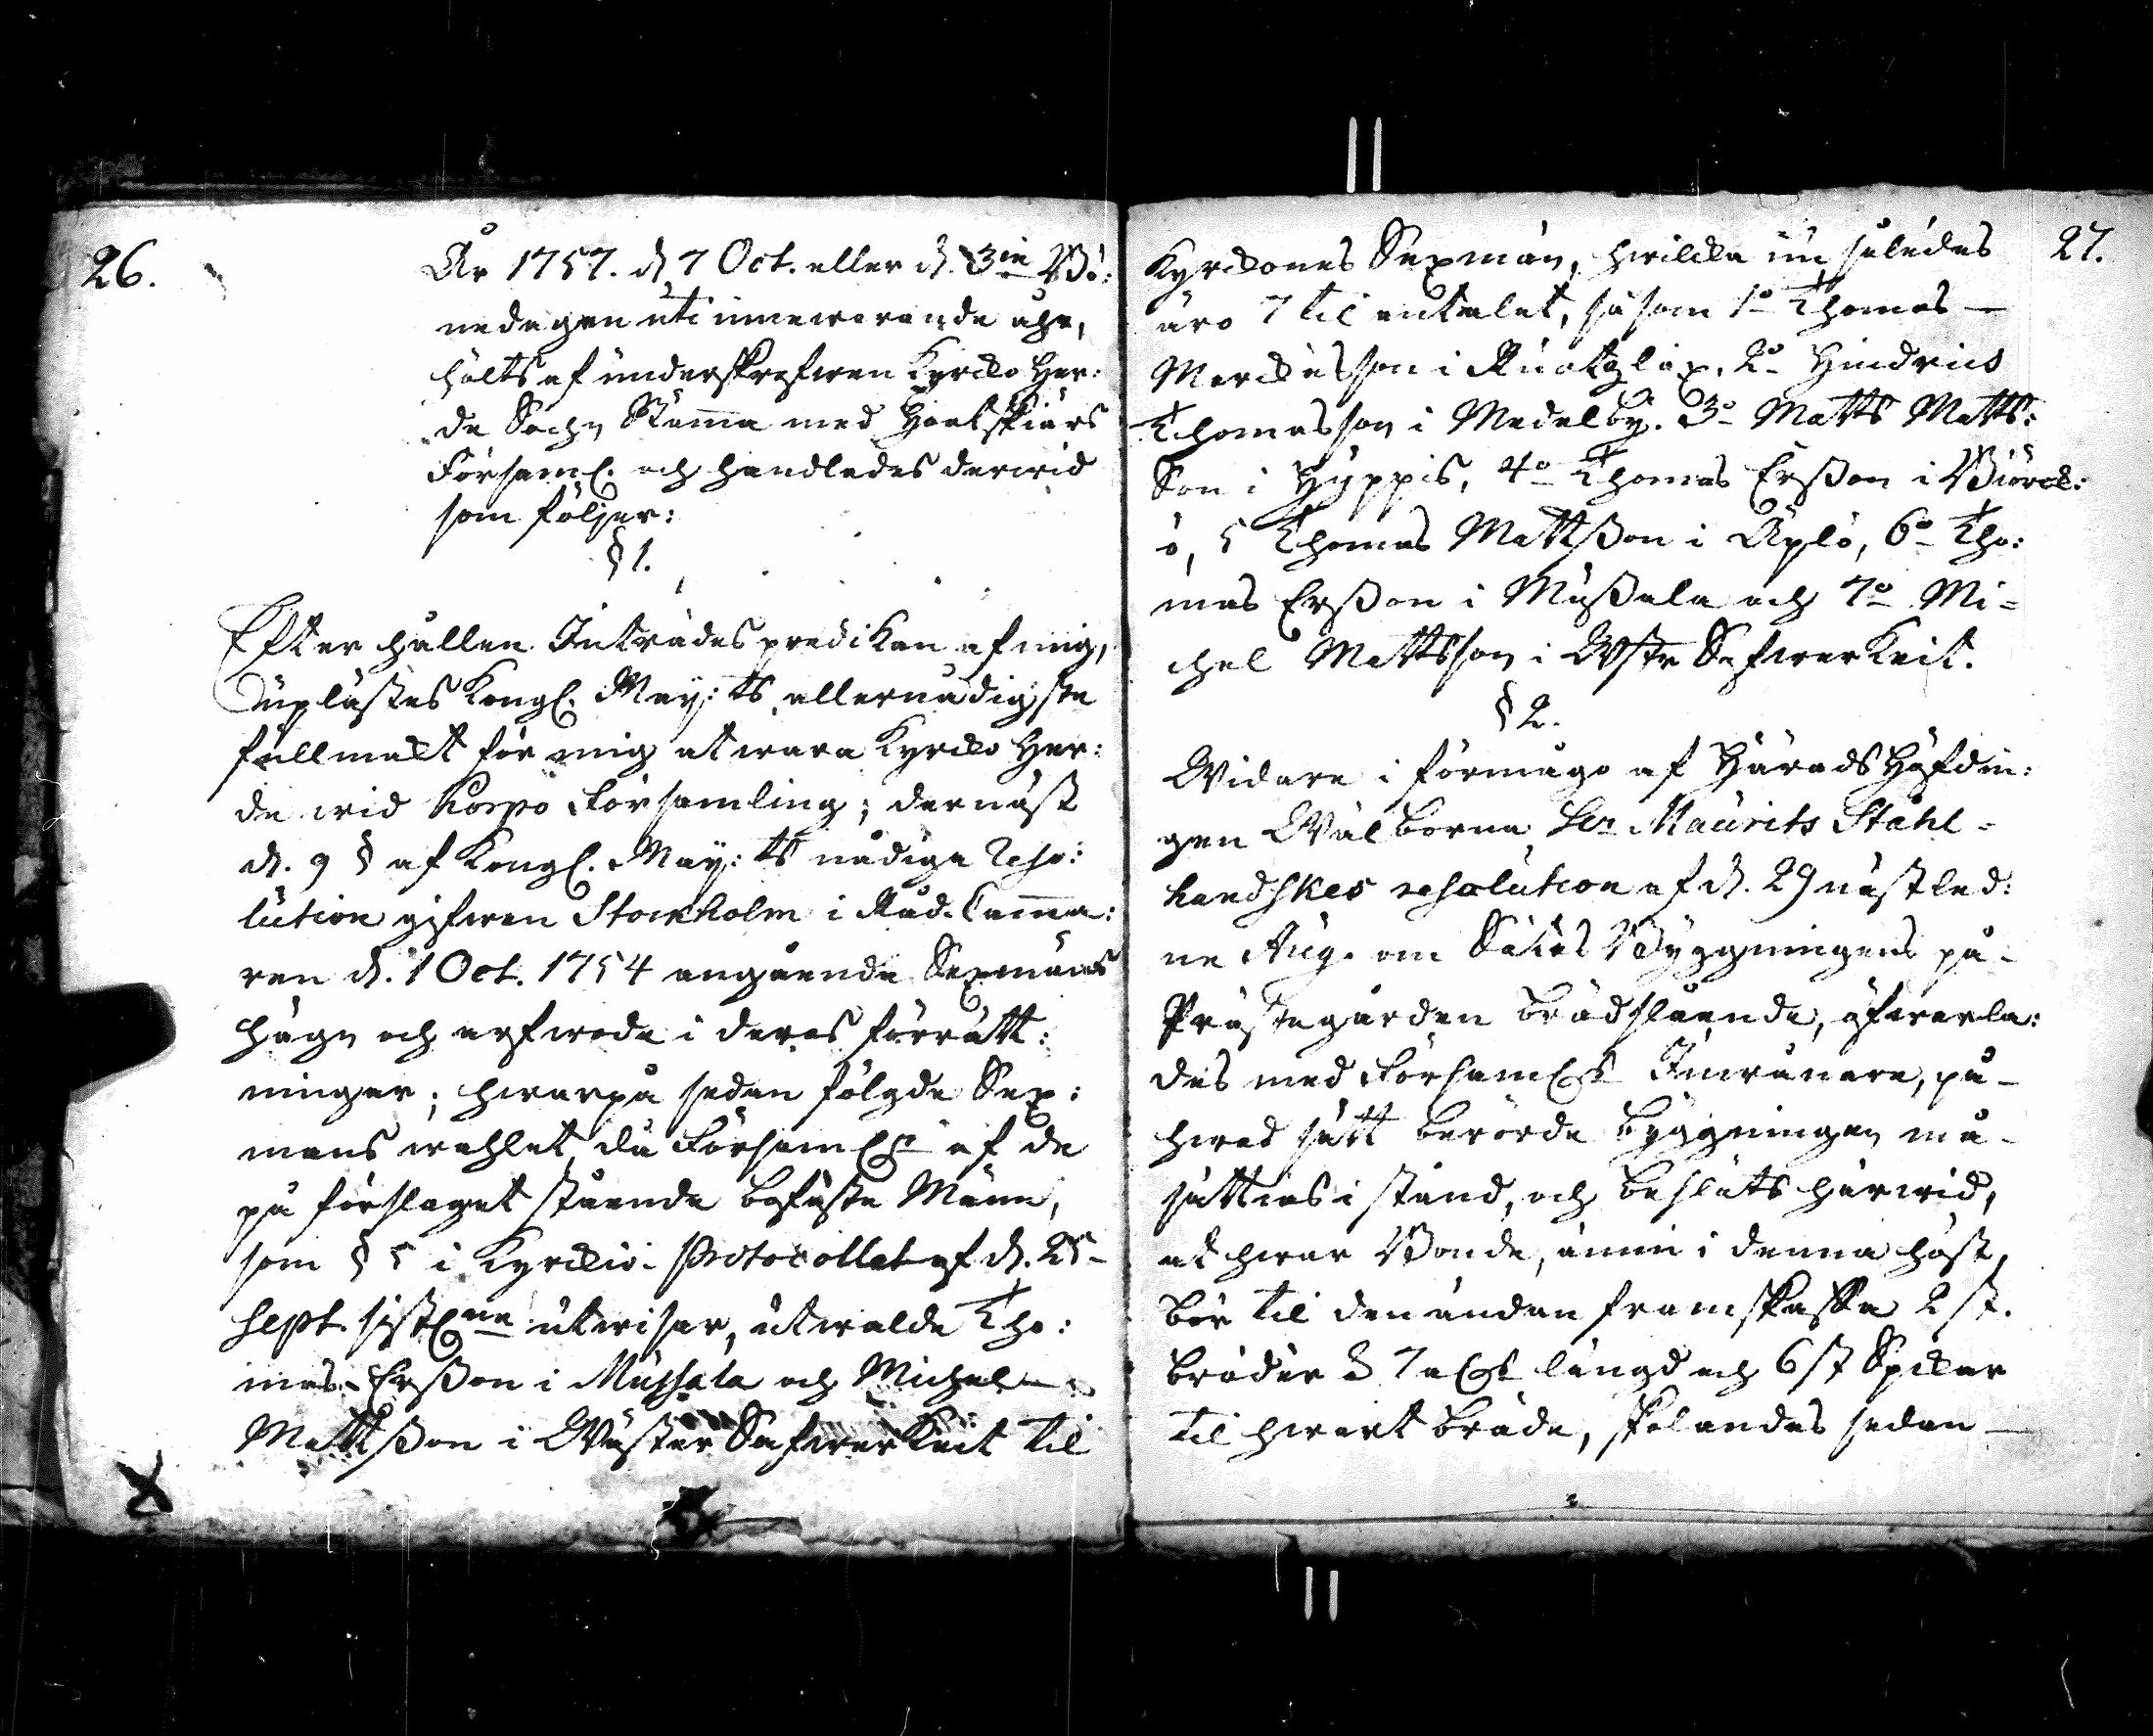 26.
År 1757. d. 7 Oct. eller d. 3ie Bö:
nedagen uti innewarande åhr,
hölts af underskrefwen Kyrcko Her:
de Sochn Stemma med Houtskiärs
Församl. och handlades derwid
som följer:
§ 1.
Efter hållen Inträdes predikan af mig,
uplästes Kongl. May:ts allernådigste
fullmakt för mig at wara Kyrcko Her:
de wid Korpo Församling; dernäst
d. 9 § af Kongl. May:ts nådige Reso:
lution gifwen Stockholm i Råd-Camma:
ren d. 1 Oct. 1754 angående Sexmäns
hägn och arfwode i deras förrätt:
ningar; hwarpå sedan följde Sex:
mans wahlet, då Församl:n af de
på förslaget stående besuste Männ,
som § 5 i Kyrckio-Protocollet af d. 25
Sept. sistl:ne utwisar, utwalde Tho:
mas Ersson i Mussala och Michel
Mattsson i Wäster Safwerkeit til
27.
Kyrckones Sexmän, hwilcka nu således
äro 7 til antalet, så som 1o Thomas
Marckusson i Roslax, 2o Hindrics
Thomasson i Medelby. 3o Matts Matts:
Son i Hyppis, 4o Thomas Ersson i Biörck:
ö, 5 Thomas Mattsson i Äplö, 6o Tho:
mas Ersson i Mussala och 7o Mi=
chel Mattsson i Wstr Safwerkeit.
§ 2.
Widare i förmågo af Härads Höfdin:
gen Wälborne Her Maurits Stahl=
handskes resolution af d. 29 nästled:
ne Aug. om Sätes Byggningens på
Prästegården brädslående, öfwerla:
des med Församl:s Inwånare, på
hwad sätt berörde Byggningen må
sättias i stånd, och besluts härwid,
at hwar Bonde, ännu i denna höst,
bör til den ändan framskaffa 2 st.
bräder à 7 al:s längd och 6 st Spikar
til hwart bräde, skolandes sedan